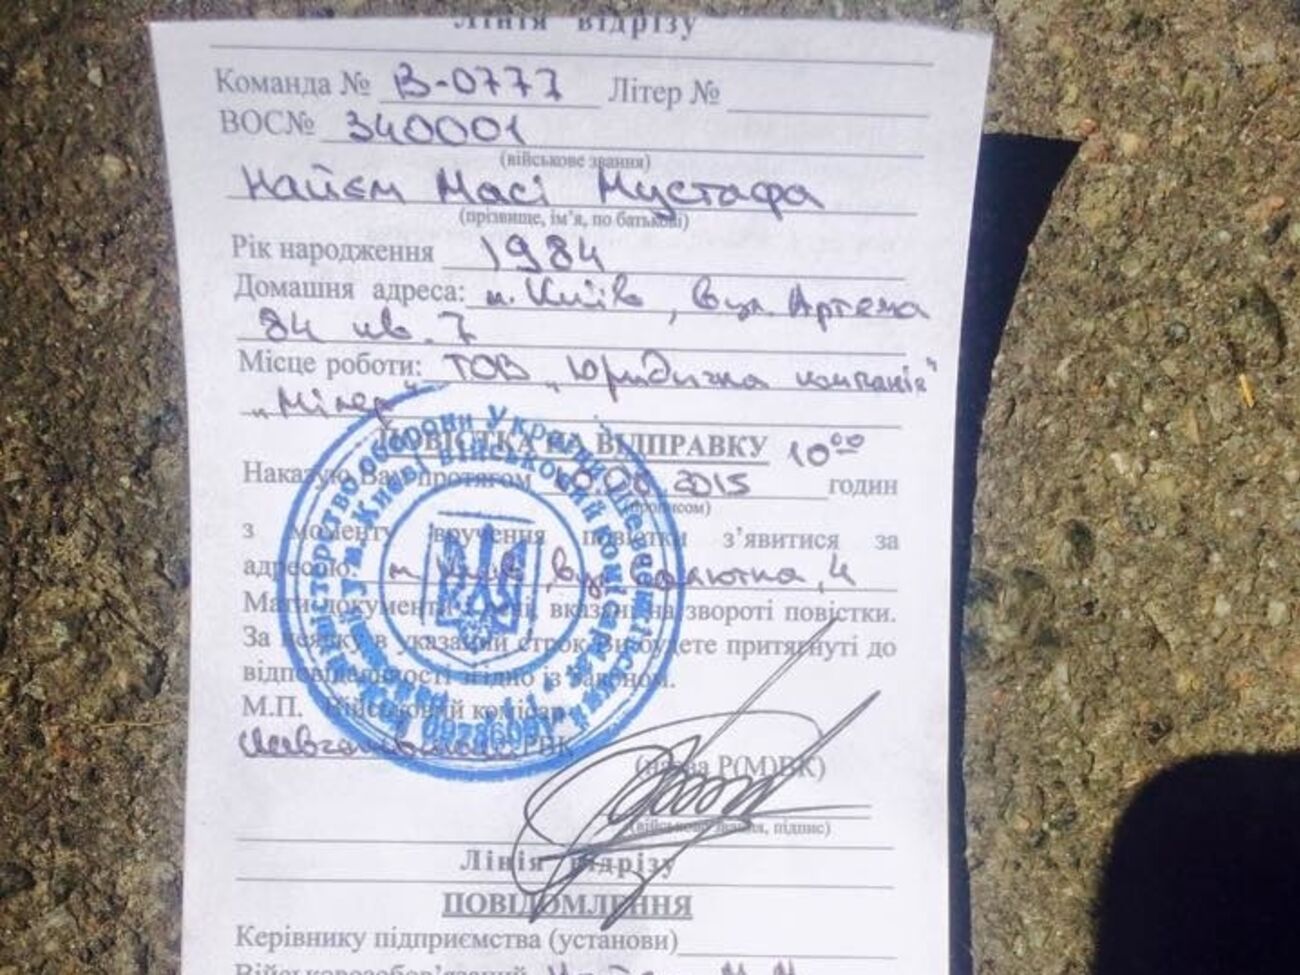 Лінія відрізу
Команда № В-0777 Літер №
ВОС№ 340001
(військове звання)
Найєм Масі Мустафа
(прізвище, ім'я, по батькові)
Рік народження 1984
Домашня адреса: м. Київ, вул. Артема
84 кв. 7
Місце роботи: ТОВ „Юридична компанія"
„Мілер"
ПОВІСТКА НА ВІДПРАВКУ 10⁰⁰
Наказую Вам протягом 2015 годин
(прописом)
з моменту вручення повістки з’явитися за
адресою: м. Київ, вул. Салютна, 4
Мати документи і речі, вказані на звороті повістки.
За неявку в указаний строк Ви будете притягнуті до
відповідальності згідно із законом.
М.П. Військовий комісар
РВК
(назва Р(М)ВК)
(військове звання, підпис)
Лінія відрізу
ПОВІДОМЛЕННЯ
Керівнику підприємства (установи)
Військовозобов’язаний Найєм М.М.